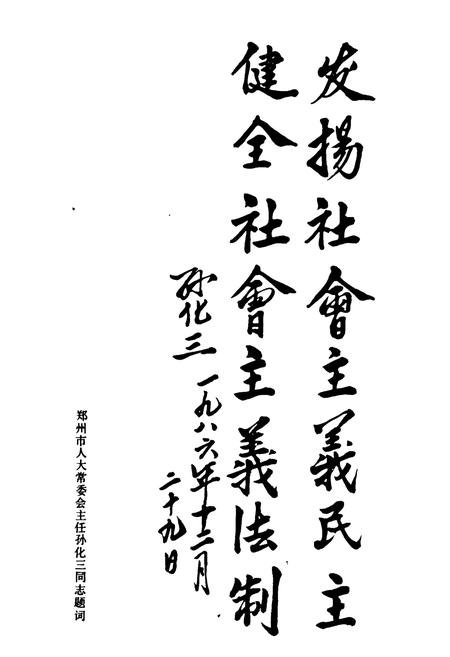 发揚社會主義民主
健全社會主義法制
孙化三
一九八六年十二月
二十九日
郑州市人大常委会主任孙化三同志题词